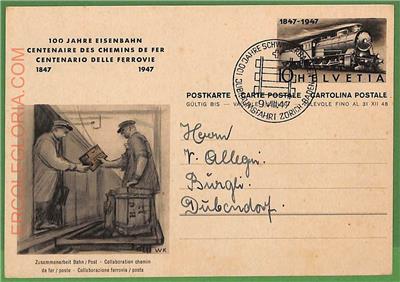 100 JAHRE EISENBAHN
CENTENAIRE DES CHEMINS DE FER
CENTENARIO DELLE FERROVIE
1847 1947
1847-1947
10 HELVETIA
100 JAHRE SCHWEIZ.
9.VIII.47
JUBILÄUMSFAHRT ZÜRICH-BADEN
POSTKARTE CARTE POSTALE CARTOLINA POSTALE
GÜLTIG BIS - VALABLE EVOLE FINO AL 31 XII 48
Herrn
V. Allegri
Bürgli
Dübendorf.
WK
Zusammenarbeit Bahn/Post - Collaboration chemin
de fer/poste - Collaborazione ferrovia/posta
ERCOLEGLORIA.COM